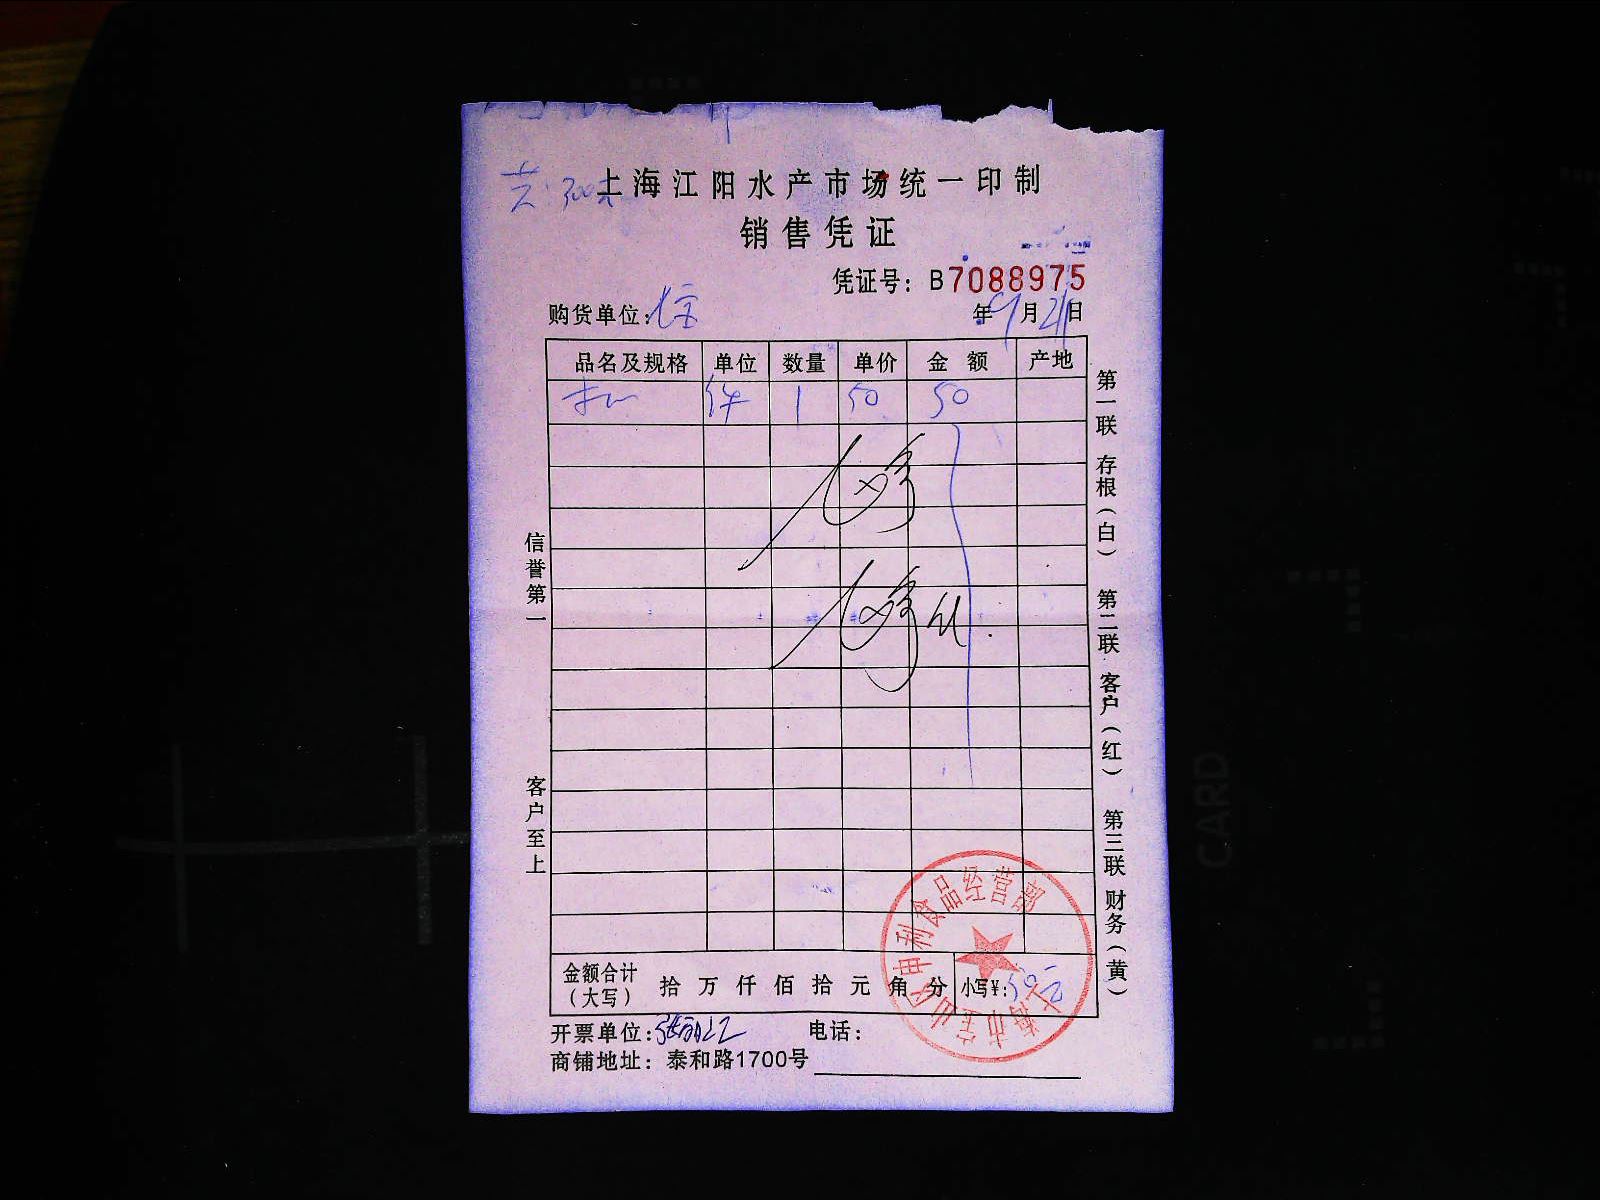 共:300元
上海江阳水产市场统一印制
销售凭证
凭证号：B7088975
购货单位：
年9月21日
品名及规格 单位 数量 单价 金额 产地
件 1 50 50
信誉第一
客户至上
第一联 存根（白） 第二联 客户（红） 第三联 财务（黄）
金额合计（大写） 拾 万 仟 佰 拾 元 角 分 小写¥：50元
开票单位：
电话：
商铺地址：泰和路1700号
上海市宝山区申利食品经营部
CARD